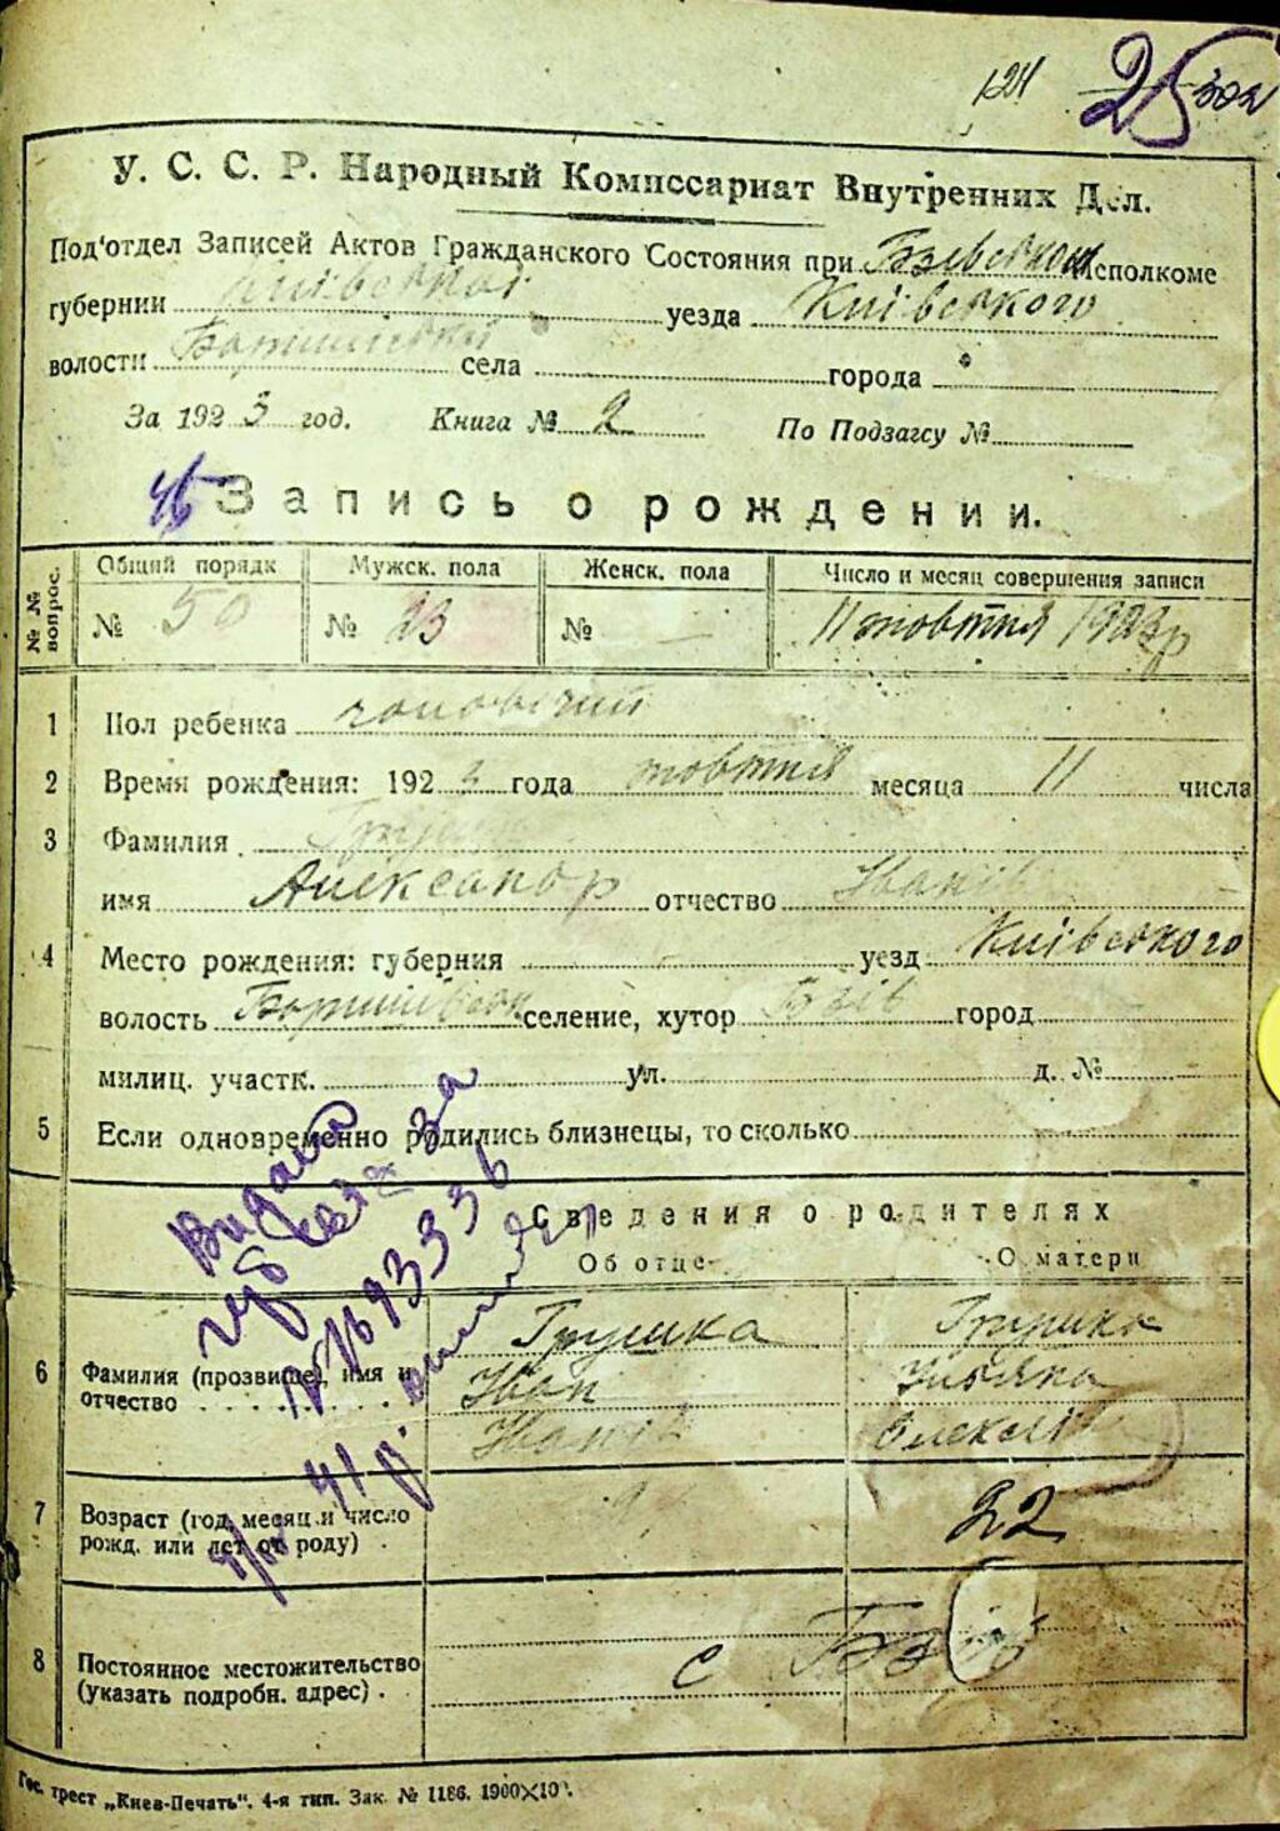 124 25 302
У. С. С. Р. Народный Комиссариат Внутренних Дел.
Под'отдел Записей Актов Гражданского Состояния при Бзівском Исполкоме
губернии Київської уезда Київського
волости села города
За 1923 год. Книга № 2 По Подзагсу №
46 Запись о рождении.
№ № вопрос. Общий порядк Мужск. пола Женск. пола Число и месяц совершения записи
№ 50 № 23 № — 11 жовтня 1923 р
1 Пол ребенка чоловічий
2 Время рождения: 1923 года жовтня месяца 11 числа
3 Фамилия Грушка
имя Александр отчество Іванів
4 Место рождения: губерния уезд Київського
волость селение, хутор Бзів город
милиц. участк. ул. д. №
5 Если одновременно родились близнецы, то сколько
Сведения о родителях
Об отце О матери
6 Фамилия (прозвище), имя и отчество
Грушка Грушка
Іван Ульяна
Іванів Олексіїв
7 Возраст (год, месяц и число рожд. или лет от роду) 22
8 Постоянное местожительство (указать подробн. адрес) с Бзів
Видана
за
Гос. трест „Киев-Печать". 4-я тип. Зак. № 1186. 1900×10.